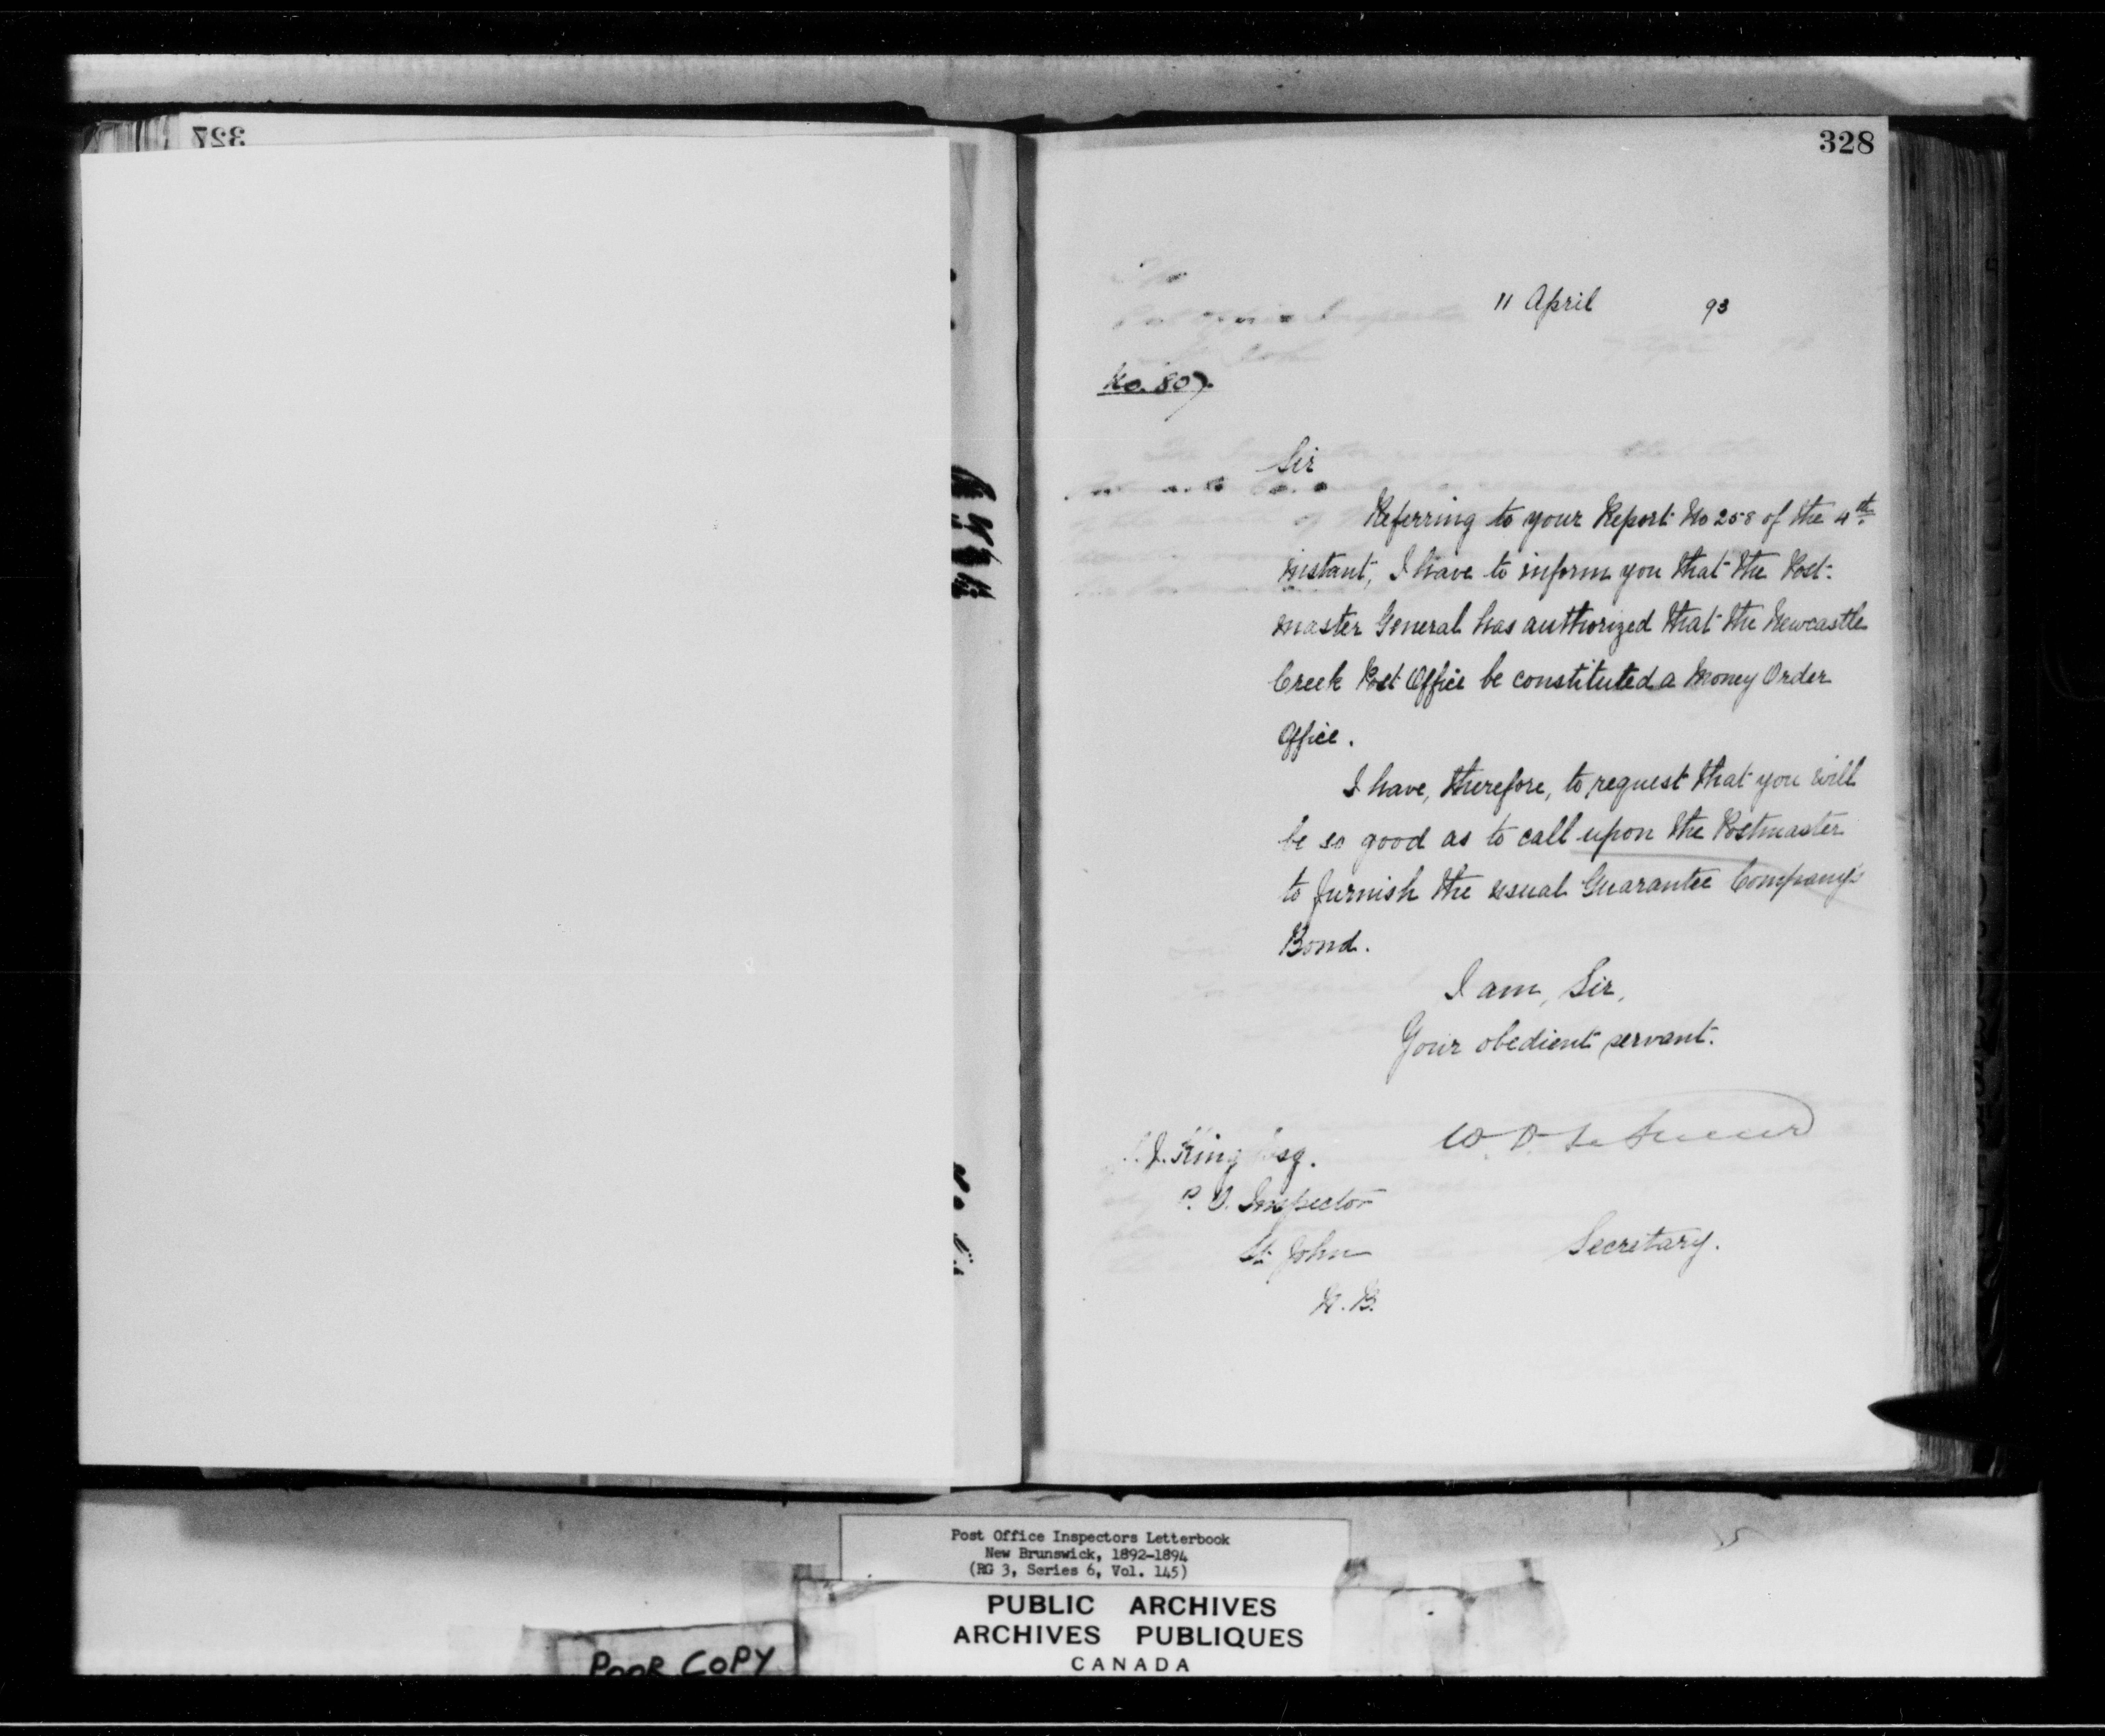 327
328
11 April 93
No. 807.
Sir
Referring to your Report No 258 of the 4th
instant, I have to inform you that the Post-
master General has authorized that the Newcastle
Creek Post Office be constituted a Money Order
Office.
I have, therefore, to request that you will
be so good as to call upon the Postmaster
to furnish the usual Guarantee Company's
Bond.
I am, Sir,
Your obedient servant.
W. D. LeSueur
J. King Esq.
P. O. Inspector
St. John
Secretary.
N. B.
Post Office Inspectors Letterbook
New Brunswick, 1892-1894
(RG 3, Series 6, Vol. 145)
PUBLIC ARCHIVES
ARCHIVES PUBLIQUES
CANADA
POOR COPY